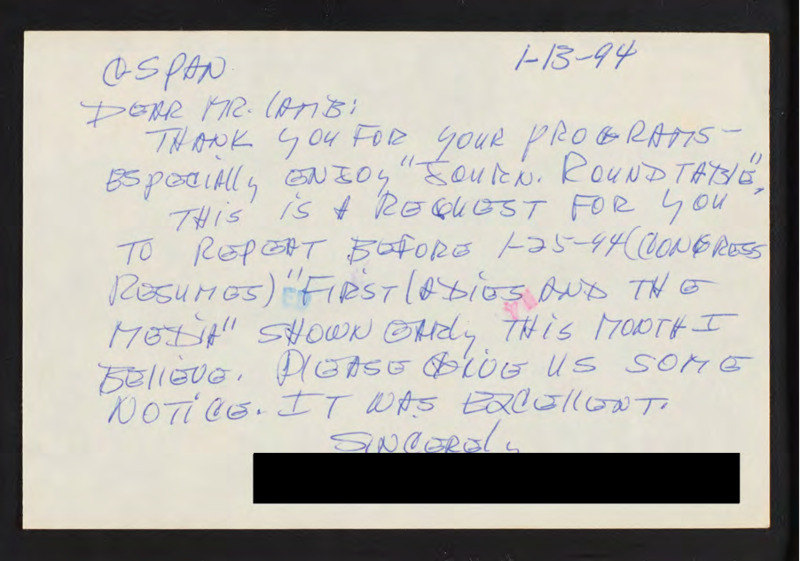 C-SPAN 1-13-94
DEAR MR. LAMB:
THANK YOU FOR YOUR PROGRAMS-
ESPECIALLY ENJOY "JOURN. ROUNDTABLE".
THIS IS A REQUEST FOR YOU
TO REPEAT BEFORE 1-25-94 (CONGRESS
RESUMES) "FIRST LADIES AND THE
MEDIA" SHOWN EARLY THIS MONTH I
BELIEVE. PLEASE GIVE US SOME
NOTICE. IT WAS EXCELLENT.
SINCERELY